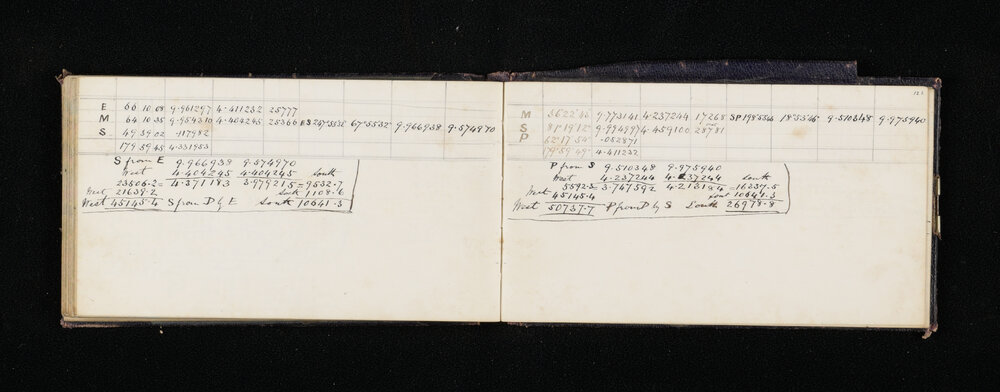 E 66 10 08 9.961297 4.411232 25777
M 64 10 35 9.954310 4.404245 25366 ES 247°55'32" 67°55'32" 9.966938 9.574970
S 49 39 02 .117982
179 59 45 4.331953
S from E 9.966938 9.574970
West 4.404245 4.404245 South
23606.2 = 4.371183 3.979215 = 9532.7
West 21539.2 South 1108.6
West 45145.4 S from D by E South 10641.3
M 36 22 43 9.773141 4.237244 17268 SP 198°55'46" 18°55'46" 9.510348 9.975940
S 81°19'12" 9.994997 4.459100 28781
P 62 17 54 .052871
179°59'49" 4.411232
P from S 9.510348 9.975940
West 4.237244 4.237244 South
5592.3 = 3.747592 4.213184 = 16337.5
West 45145.4 South 10641.3
West 50737.7 P from D by S South 26978.8